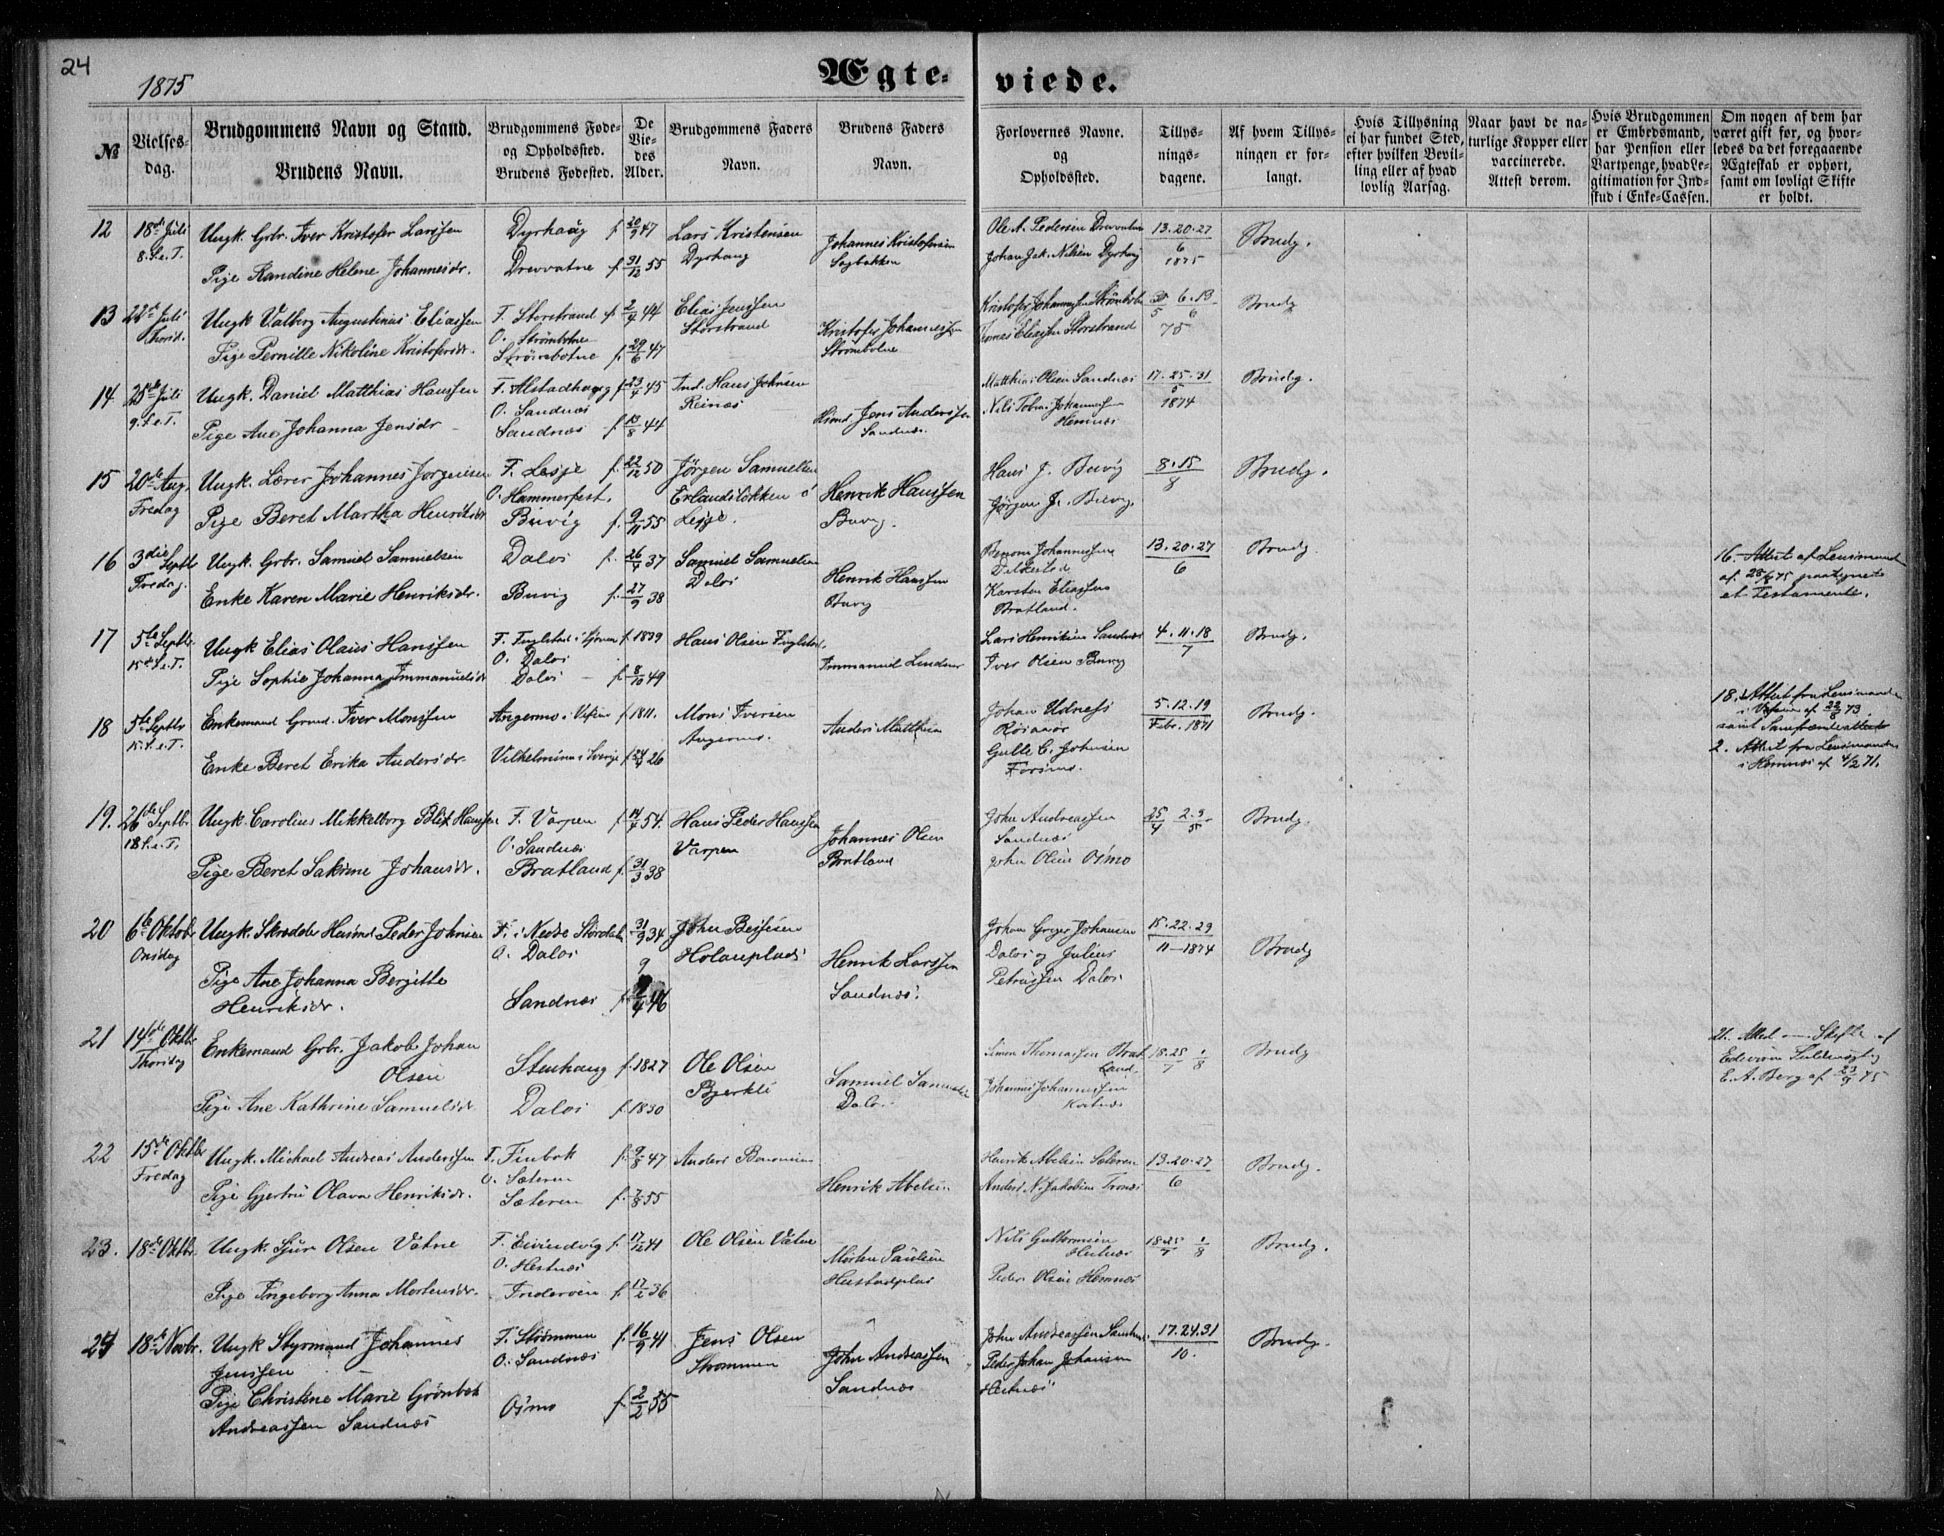 24
1875
Ægte-
viede.
№
Vielses-
dag.
Brudgommens Navn og Stand.
Brudens Navn.
Brudgommens Føde-
og Opholdssted.
Brudens Fødested.
De
Vie-
des
Alder.
Brudgommens Faders
Navn.
Brudens Faders
Navn.
Forlovernes Navne.
og
Opholdssted.
Tillys-
nings-
dagene.
Af hvem Tillys-
ningen er for-
langt.
Hvis Tillysning
ei har fundet Sted,
efter hvilken Bevil-
ling eller af hvad
lovlig Aarsag.
Naar havt de na-
turlige Kopper eller
vaccinerede.
Attest derom.
Hvis Brudgommen
er Embedsmand,
har Pension eller
Vartpenge, hvad Le-
gitimation for Ind-
skud i Enke-Cassen.
Om nogen af dem har
været gift før, og hvor-
ledes da det foregaaende
Ægteskab er ophørt,
samt om lovligt Skifte
er holdt.
12 18de Juli Ungk. Grbr. Iver Kristofer Larssen Dyrhaug f. 20/9 47 Lars Kristensen Ole A. Pedersen Drevvatne 13.20.27 Brudg.
8. S.e.T. Dyrhaug Johannes Kristofersen 6
Pige Randine Helene Johannesdr. Drevvatne f. 31/12 55 Johan Jak. Nilsen Dyrhaug 1875
13 22de Juli Ungk. Valberg Augustinus Eliassen F. Storstrand f. 2/4 44 Elias Jenssen 30/5 6.13/6 Brudg
Thorsd. O. Strømbotne Storstrand Kristofer Johannessen Tomas Eliassen Storstrand 75
Pige Pernille Nikoline Kristofersdr. Strømbotne f. 29/6 47 Strømbotne
14 25de Juli Ungk. Daniel Matthias Hanssen F. Alstadhaug f. 23/4 45 Ind. Hans Johnsen Matthias Olsen Sandnæs 17.25.31 Brudg.
9. S.e.T. O. Sandnæs Reinæs 5
Pige Ane Johanna Jensdr. Sandnæs f. 44 Jens Anderssen Sandnæs. Nils Tobias Johannessen Hemnæs 1874
15 20de Aug. Ungk. Lærer Johannes Jørgensen F. Lesje f. 22/12 50 Jørgen Samuelsen Hans J. Buvig 8.15 Brudg.
Fredag O. Hammerfest. Erlandsløkken i Henrik Hanssen 8
Pige Beret Martha Henriksdr. Buvig f. 9/11 55 Lesje. Buvig. Jørgen Jr. Buvig.
16 3die Septb. Ungk. Grbr. Samuel Samuelsen Dalos f. 26/4 37 Samuel Samuelsen Benoni Johannessen 13.20.27 Brudg. 16. Attest af Lensmand
Fredag. Dalos Henrik Hanssen 6 paategnet
Enke Karen Marie Henriksdr. Buvig f. 27/9 38 Buvig Karsten Eliassen Bratland. et Testamente.
17 5te Septbr. Ungk Elias Olaus Hanssen F. f. 1839 Hans Olsen Lars Henriksen Sandnæs 4.11.18 Brudg.
15de S.e.T. O. Dalos Immanuel 7
Pige Sophie Johanna Immanuelsdr Dalos f. 8/10 49 Iver Olsen Buvig
18 5te Septbr Enkemand Grmd. Iver Monssen Angermo i Vefsn f. 1811. Mons Iversen Johan Udness 5.12.19 Brudg. 18. Attest fra Lensmanden
15. S.e.T. Angermo. Anders Matthias Røsaaør Febr. 1871 i Vefsen af 73.
Enke Beret Erika Andersdr. Vilhelmina i Sverige f. 26 Gulle C. Johnsen Forsmo. 2. Attest fra Lensmanden
i Hemnæs af 4/2 71.
19. 26de Septbr. Ungk. Carolius Mikkelborg Blix Hanssen F. Varpen f. 54. Hans Peder Hanssen John Andreassen 25/4 2.9/5 Brudg.
18 S.e.T. O. Sandnæs Varpen Johannes Olsen Sandnæs
Pige Beret Sakrine Johansdr. Bratland f. 31/3 38 Bratland John Olsen Osmo
20 6te Oktob Ungk. Skredder Husmd Peder Johnsen F. i Nedre Stordalen 31/9 34 John Johan Johansen 15.22.29
Onsdag O. Dalos Dalos og Julius 11—1874 Brudg
Pige Ane Johanna Bergitte Henrik Larssen Petrussen Dalos
Henriksdr. Sandnæs f. 46 Sandnæs.
21 14de Oktbr Enkemand Grbr. Jakob Johan Simon Thomassen Brat 18.25/7 1/8 Brudg 21. Attest Skifte af
Thorsdag Olsen Stenhaug f. 1827 Ole Olsen land.
Bjerkli Samuel Samuelsen Johannes Johannessen E. A. Berg af 23/9 75
Pige Ane Kathrine Samuelsdr Dalos f. 1830 Dalos
22 15de Oktbr Ungk. Michael Andreas Anderssen F. Finbak f. 9/8 47 Anders Henrik Abelsen Sæteren 13.20.27 Brudg.
Fredag O. Sæteren 6
Pige Gjertru Olava Henriksdr. Sæteren f. 7/8 55 Henrik Abelsen Anders N. Jakobsen
23. 18de Oktbr. Ungk. Sjur Olsen Vatne F. Eivindvig f. 17/12 41 Ole Olsen Vatne Nils Guttormsen 18.25/7 1/8 Brudg.
O. Hestnæs Morten Paulsen Hestnæs
Pige Ingeborg Anna Mortensdr. f. 17/2 36 Hustadplas Peder Olsen Hemnæs
24 18de Novbr. Ungk Styrmand Johannes F. Strømmen f. 16/9 41 Jens Olsen John Andreassen Sandnæs 17.24.31 Brudg.
Jenssen O. Sandnæs Strømmen John Andreassen Peder Johan Johansen 10.
Pige Christine Marie Grønbek Osmo f. 2/2 55 Sandnæs Hestnæs
Andreassen Sandnæs